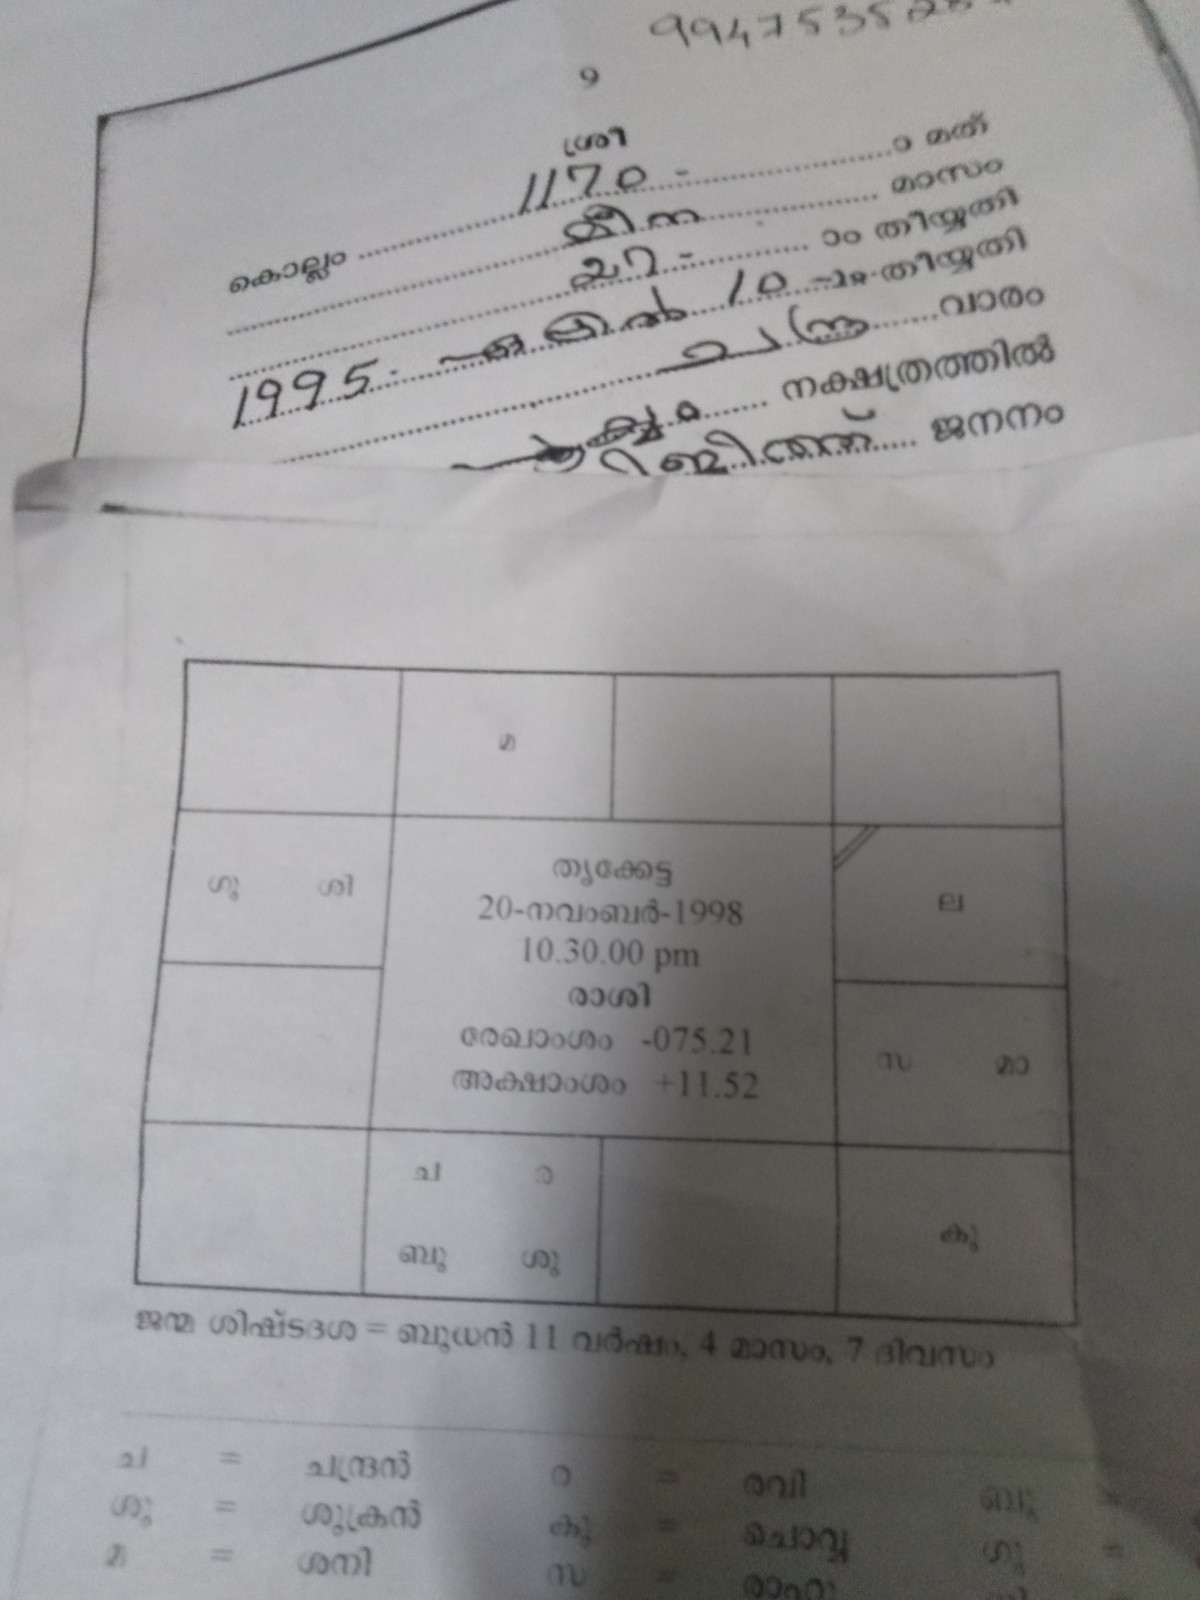 9
ശ്രീ
കൊല്ലം 1170 - ാ മത്
മീന മാസം
27 - ാം തിയ്യതി
1995. ഏപ്രിൽ 10 -ാം തിയ്യതി
ചന്ദ്ര വാരം
നക്ഷത്രത്തിൽ
ജനനം
മ
ഗു ശി
തൃക്കേട്ട
20-നവംബർ-1998
10.30.00 pm
രാശി
രേഖാംശം -075.21
അക്ഷാംശം +11.52
ല
സ മാ
ച ര
ബു ശു
കു
ജന്മ ശിഷ്ടദശ = ബുധൻ 11 വർഷം, 4 മാസം, 7 ദിവസം
ച = ചന്ദ്രൻ ര = രവി ബു =
ശു = ശുക്രൻ കു = ചൊവ്വ ഗു =
മ = ശനി സ = രാഹു